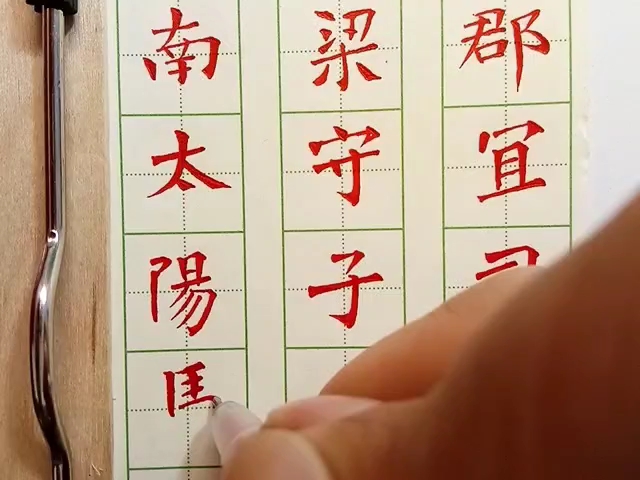 南梁郡
太守宜
陽子司